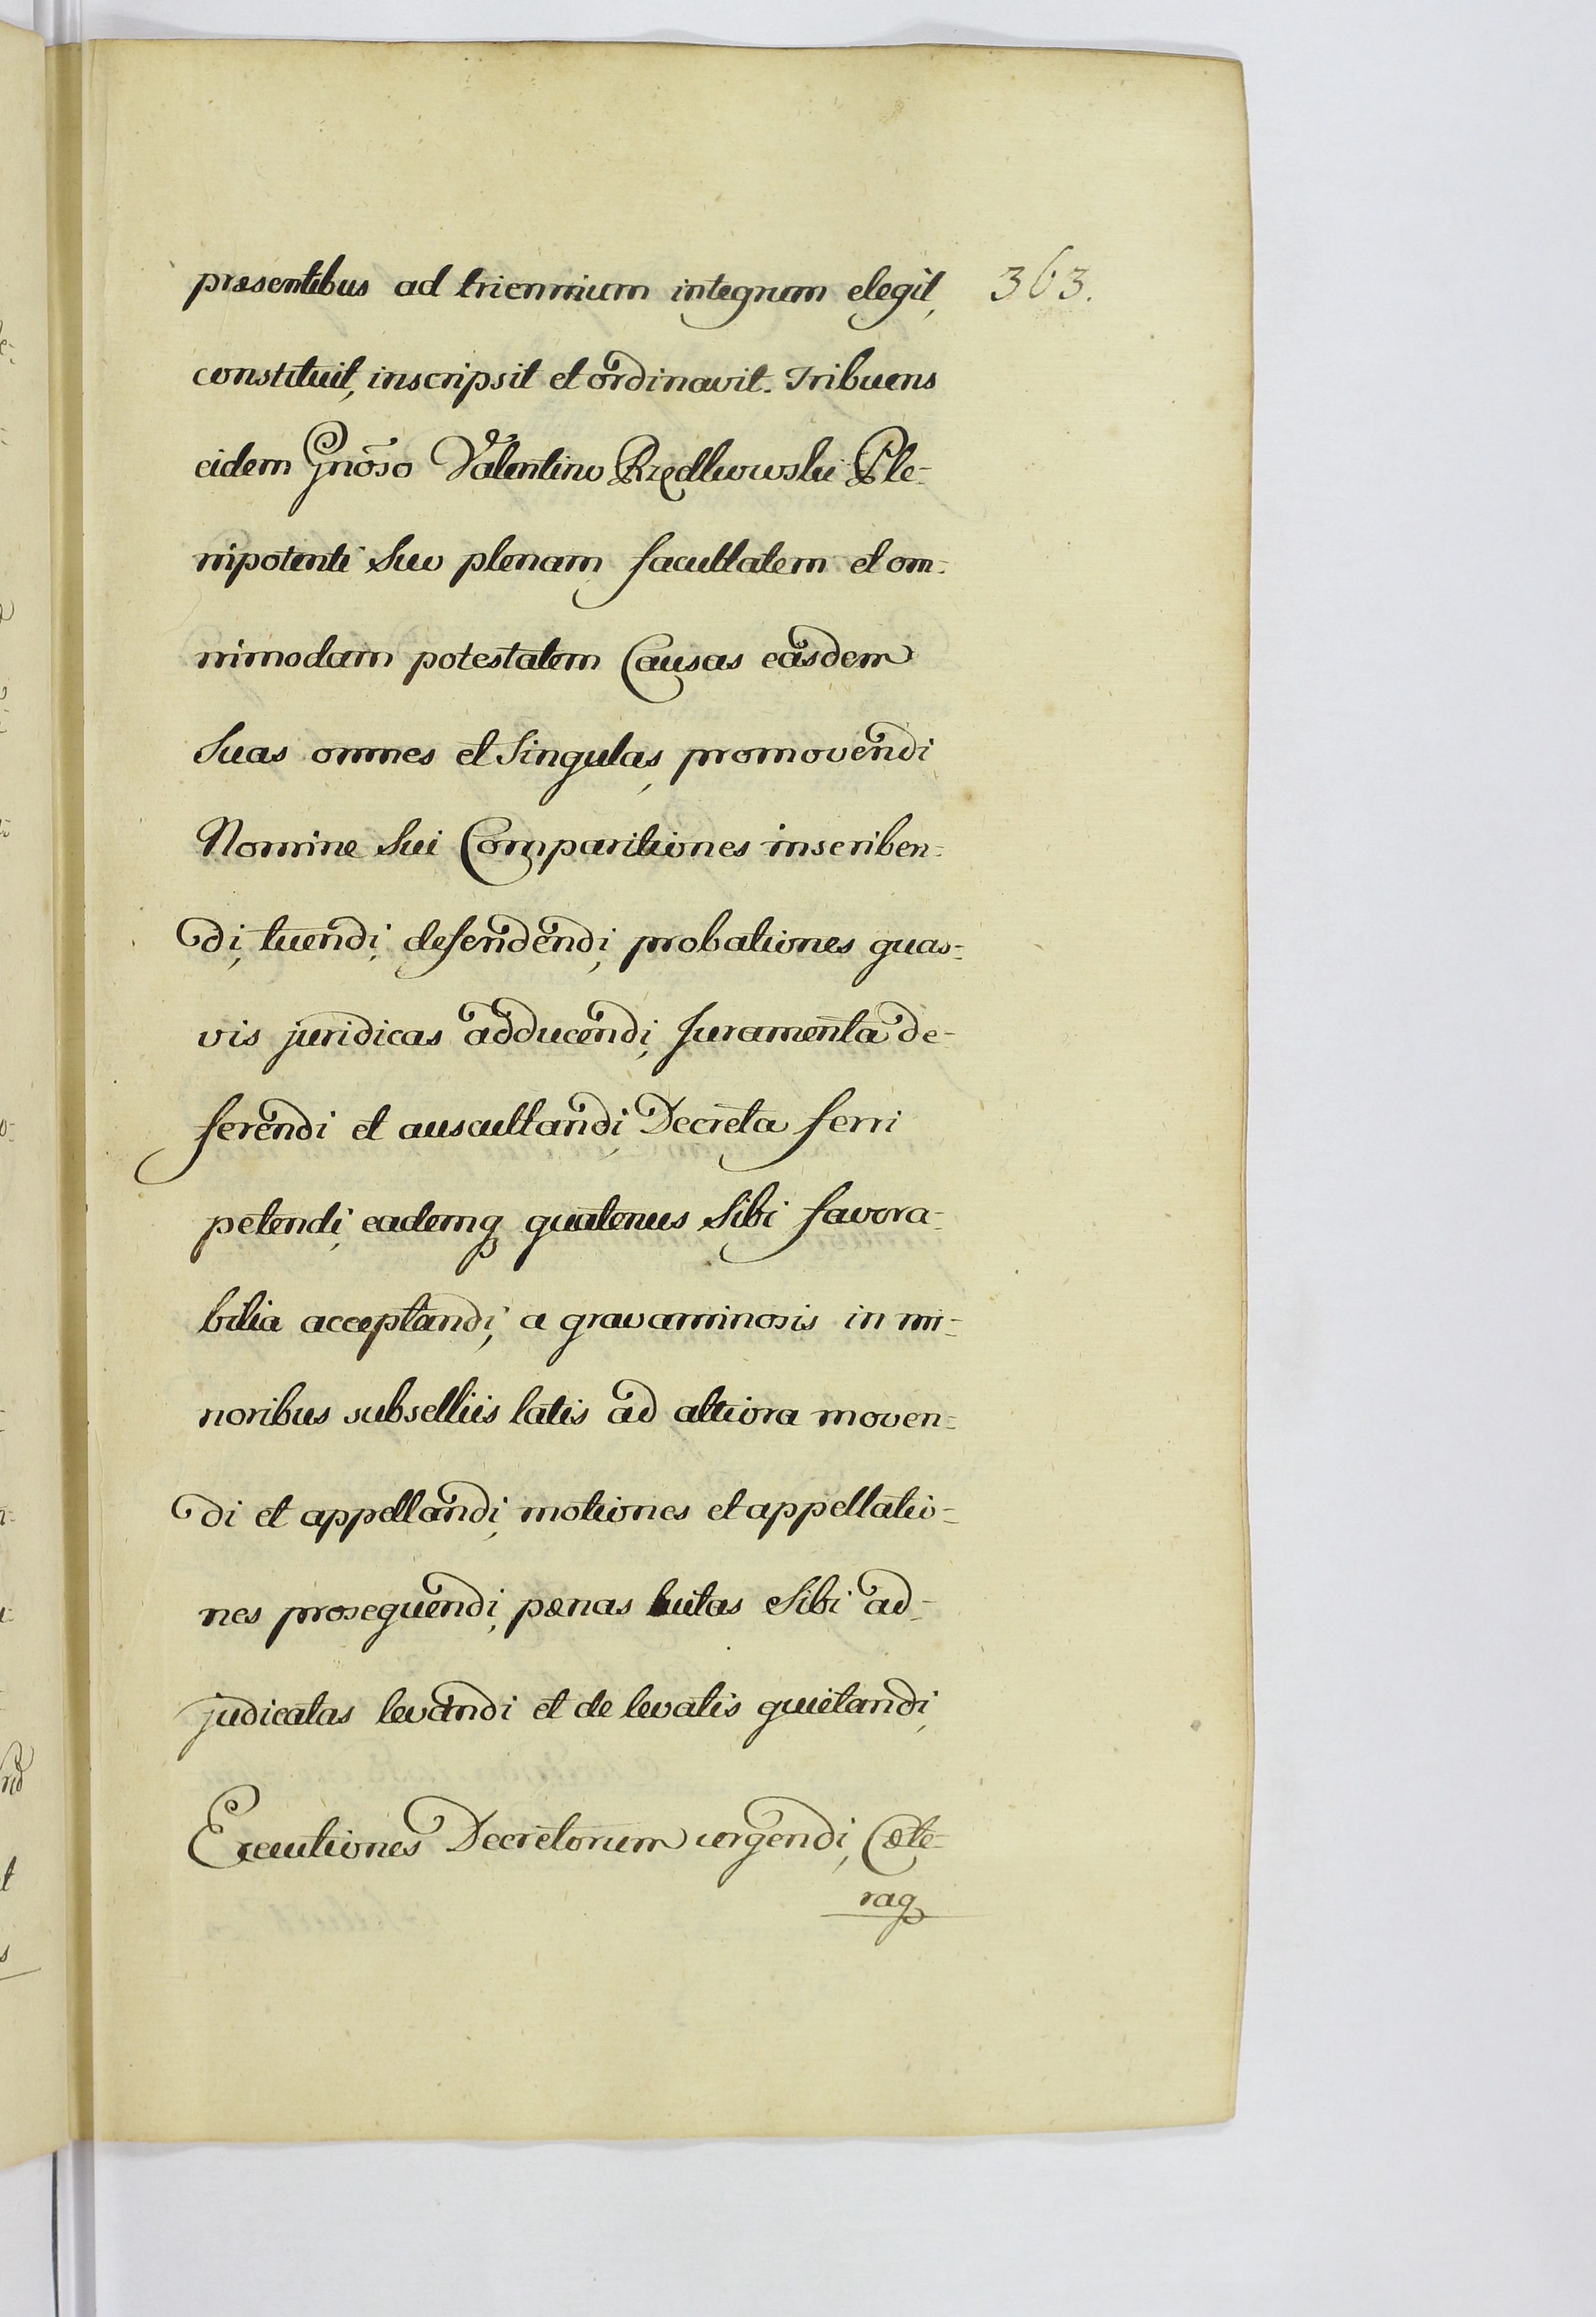 præsentibus ad triennium integrum elegit, 363.
constituit, inscripsit et ordinavit. Tribuens
eidem Gnõso Valentino Rzędkowski Ple-
nipotenti Suo plenam facultatem et om-
nimodam potestatem Causas easdem
Suas omnes et Singulas, promovendi
Nomine Sui Comparitiones inscriben-
di, tuendi, defendendi, probationes quas-
vis juridicas adducendi, Juramenta de-
ferendi et auscultandi, Decreta ferri
petendi, eademq quatenus Sibi favora-
bilia acceptandi, a gravaminosis in mi-
noribus subselliis latis ad altiora moven-
di et appellandi, motiones et appellatio-
nes prosequendi, pænas luitas Sibi ad-
judicatas levandi et de levatis quietandi,
Executiones Decretorum urgendi, Cæte-
raq